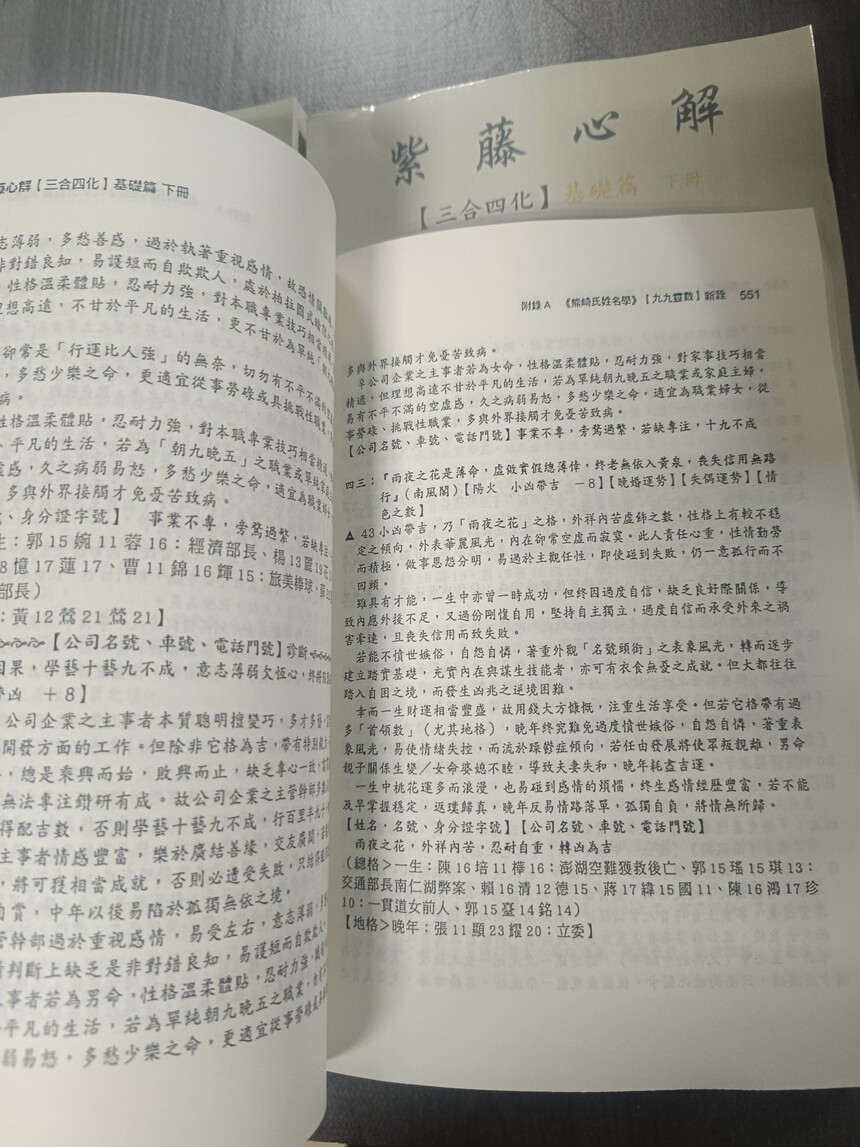 紫藤心解
【三合四化】基礎篇 下冊
心解【三合四化】基礎篇 下冊
志薄弱，多愁善感，過於執著重視感情，故恐情關
非對錯良知，易護短而自欺欺人，處於柏拉圖式
性格溫柔體貼，忍耐力強，對本職專業技巧相當
理想高遠，不甘於平凡的生活，更不甘於為單純
卻常是「行運比人強」的無奈，切勿有不平不滿的
，多愁少樂之命，更適宜從事勞碌或具挑戰性職業
病。
性格溫柔體貼，忍耐力強，對本職專業技巧相當精
平凡的生活，若為「朝九晚五」之職業或單純家庭
虛感，久之病弱易怒，多愁少樂之命，適宜為職業婦
多與外界接觸才免憂苦致病。
、身分證字號】 事業不專，旁騖過繁，若缺專注
生：郭15婉11蓉16：經濟部長、楊13麗19花
8憶17蓮17、曹11錦16輝15：旅美棒球、蘇
部長）
：黃12鶯21鶯21】
【公司名號、車號、電話門號】診斷
因果，學藝十藝九不成，意志薄弱欠恆心，終將
帶凶 ＋8】
公司企業之主事者本質聰明擅變巧，多才多藝，
開發方面的工作。但除非它格為吉，帶有特別
，總是乘興而始，敗興而止，缺乏專心一致，
無法專注鑽研有成。故公司企業之主管幹部多
得配吉數，否則學藝十藝九不成，行百里半九十
主事者情感豐富，樂於廣結善緣，交友廣闊，
，將可獲相當成就，否則必遭受失敗，只結得
自賞，中年以後易陷於孤獨無依之境。
管幹部過於重視感情，易受左右，意志薄弱，
情判斷上缺乏是非對錯良知，易護短而自欺欺人，
主事者若為男命，性格溫柔體貼，忍耐力強，
平凡的生活，若為單純朝九晚五之職業，
弱易怒，多愁少樂之命，更適宜從事勞碌或
附錄A 《熊崎氏姓名學》【九九靈數】新詮 551
多與外界接觸才免憂苦致病。
阜公司企業之主事者若為女命，性格溫柔體貼，忍耐力強，對家事技巧相當
精通，但理想高遠不甘於平凡的生活，若為單純朝九晚五之職業或家庭主婦，
易有不平不滿的空虛感，久之病弱易怒，多愁少樂之命，適宜為職業婦女，從
事勞碌、挑戰性職業，多與外界接觸才免憂苦致病。
【公司名號、車號、電話門號】事業不專，旁騖過繁，若缺專注，十九不成
四三：『雨夜之花是薄命，虛做實假總薄倖，終老無依入黃泉，喪失信用無路
行』（南風閣）【陽火 小凶帶吉 －8】【晚婚運勢】【失偶運勢】【情
色之數】
▲ 43小凶帶吉，乃「雨夜之花」之格，外祥內苦虛飾之數，性格上有較不穩
定之傾向，外表華麗風光，內在卻常空虛而寂寞。此人責任心重，性情勤勞
而積極，做事恩怨分明，易過於主觀任性，即使碰到失敗，仍一意孤行而不
回頭。
雖具有才能，一生中亦曾一時成功，但終因過度自信，缺乏良好際關係，導
致內應外援不足，又過份剛愎自用，堅持自主獨立，過度自信而承受外來之禍
害牽連，且喪失信用而致失敗。
若能不憤世嫉俗，自怨自憐，著重外觀「名號頭銜」之表象風光，轉而逐步
建立踏實基礎，充實內在與謀生技能者，亦可有衣食無憂之成就。但大都往往
踏入自困之境，而發生凶兆之逆境困難。
幸而一生財運相當豐盛，故用錢大方慷慨，注重生活享受。但若它格帶有過
多「首領數」（尤其地格），晚年終究難免過度憤世嫉俗，自怨自憐，著重表
象風光，易使情緒失控，而流於躁鬱症傾向，若任由發展將使眾叛親離，男命
親子關係生變／女命婆媳不睦，導致夫妻失和，晚年耗盡吉運。
一生中桃花運多而浪漫，也易碰到感情的煩惱，終生感情經歷豐富，若不能
及早掌握穩定，返璞歸真，晚年反易情路落單，孤獨自負，將情無所歸。
【姓名‧名號、身分證字號】【公司名號、車號、電話門號】
雨夜之花，外祥內苦，忍耐自重，轉凶為吉
（總格＞一生：陳16培11樺16：澎湖空難獲救後亡、郭15瑤15琪13：
交通部長南仁湖弊案、賴16清12德15、蔣17緯15國11、陳16鴻17珍
10：一貫道女前人、郭15臺14銘14）
【地格＞晚年：張11顯23耀20：立委】